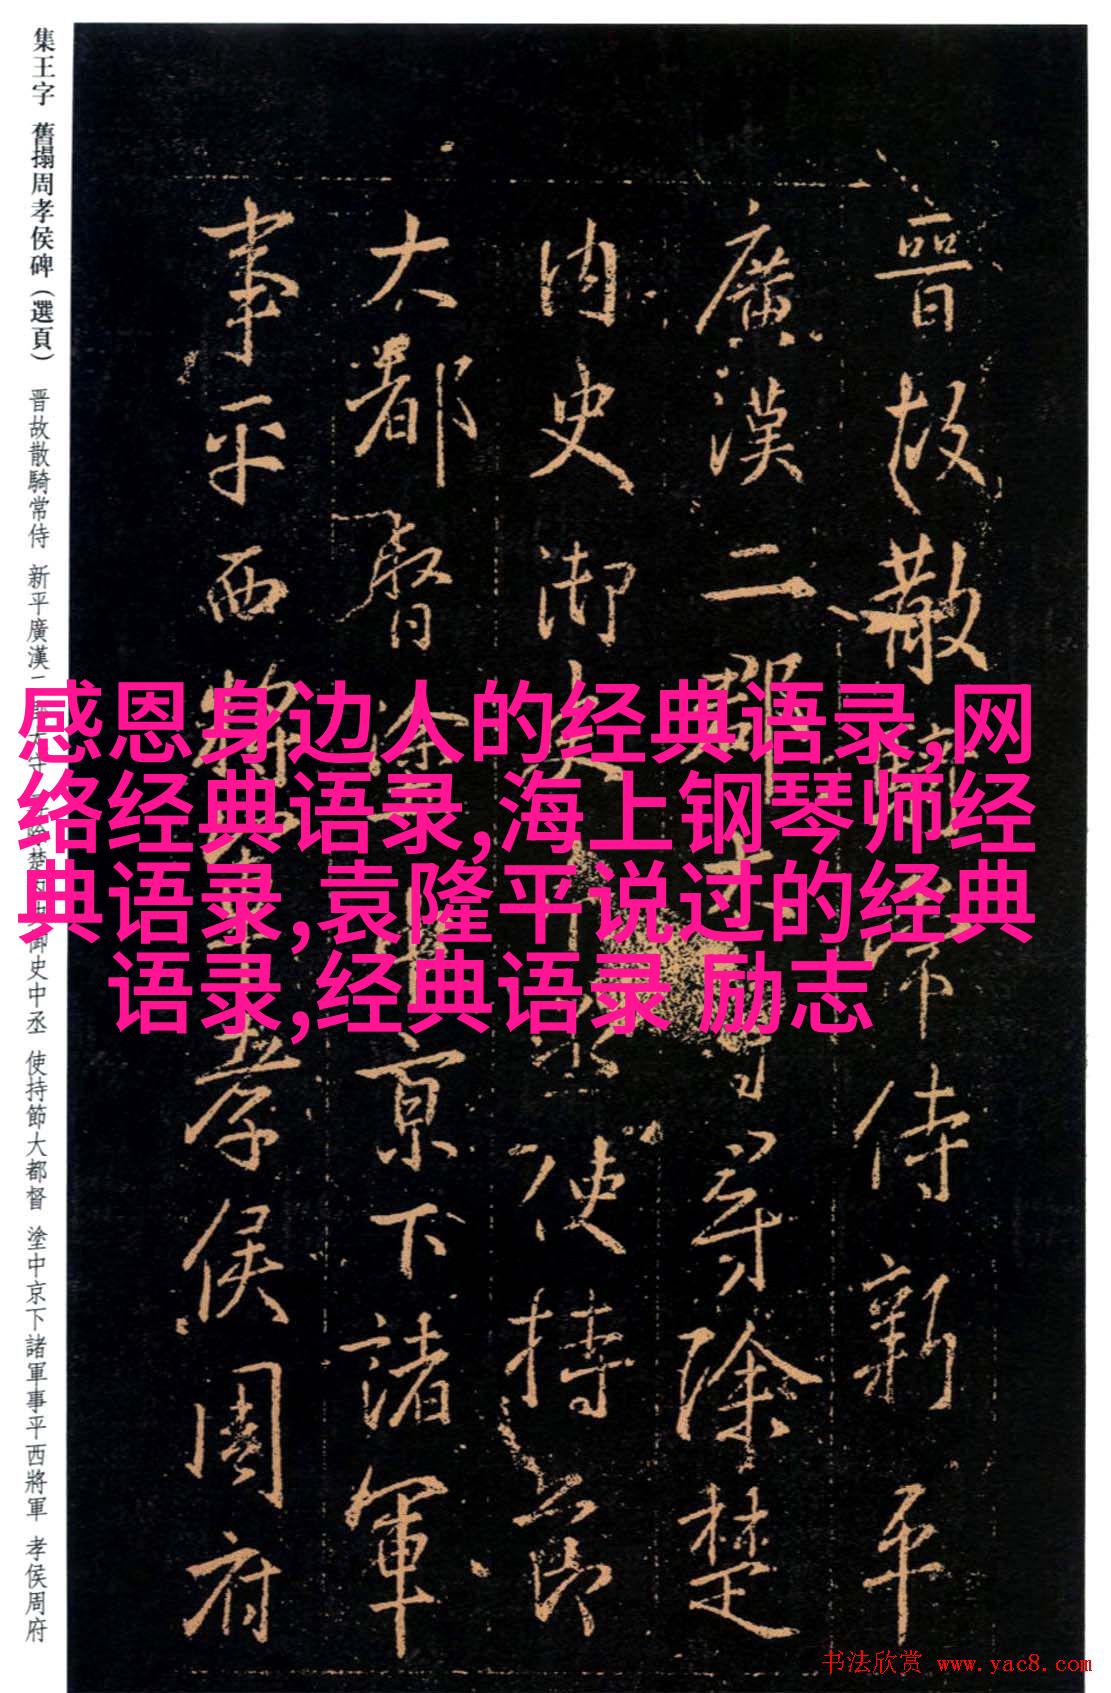 集王字 舊搨周孝侯碑（選頁） 晋故散騎常侍 新平廣漢二 除楚内 御史中丞 使持節大都督 塗中京下諸軍事平西將軍 孝侯周府
晉故散 常侍新平
廣漢二郡太守尋除楚
内史御史中丞使持節
大都督塗中京下諸軍
事平西將軍孝侯周府
感恩身边人的经典语录,网
络经典语录,海上钢琴师经
典语录,袁隆平说过的经典
语录,经典语录 励志
书法欣赏 www.yac8.com